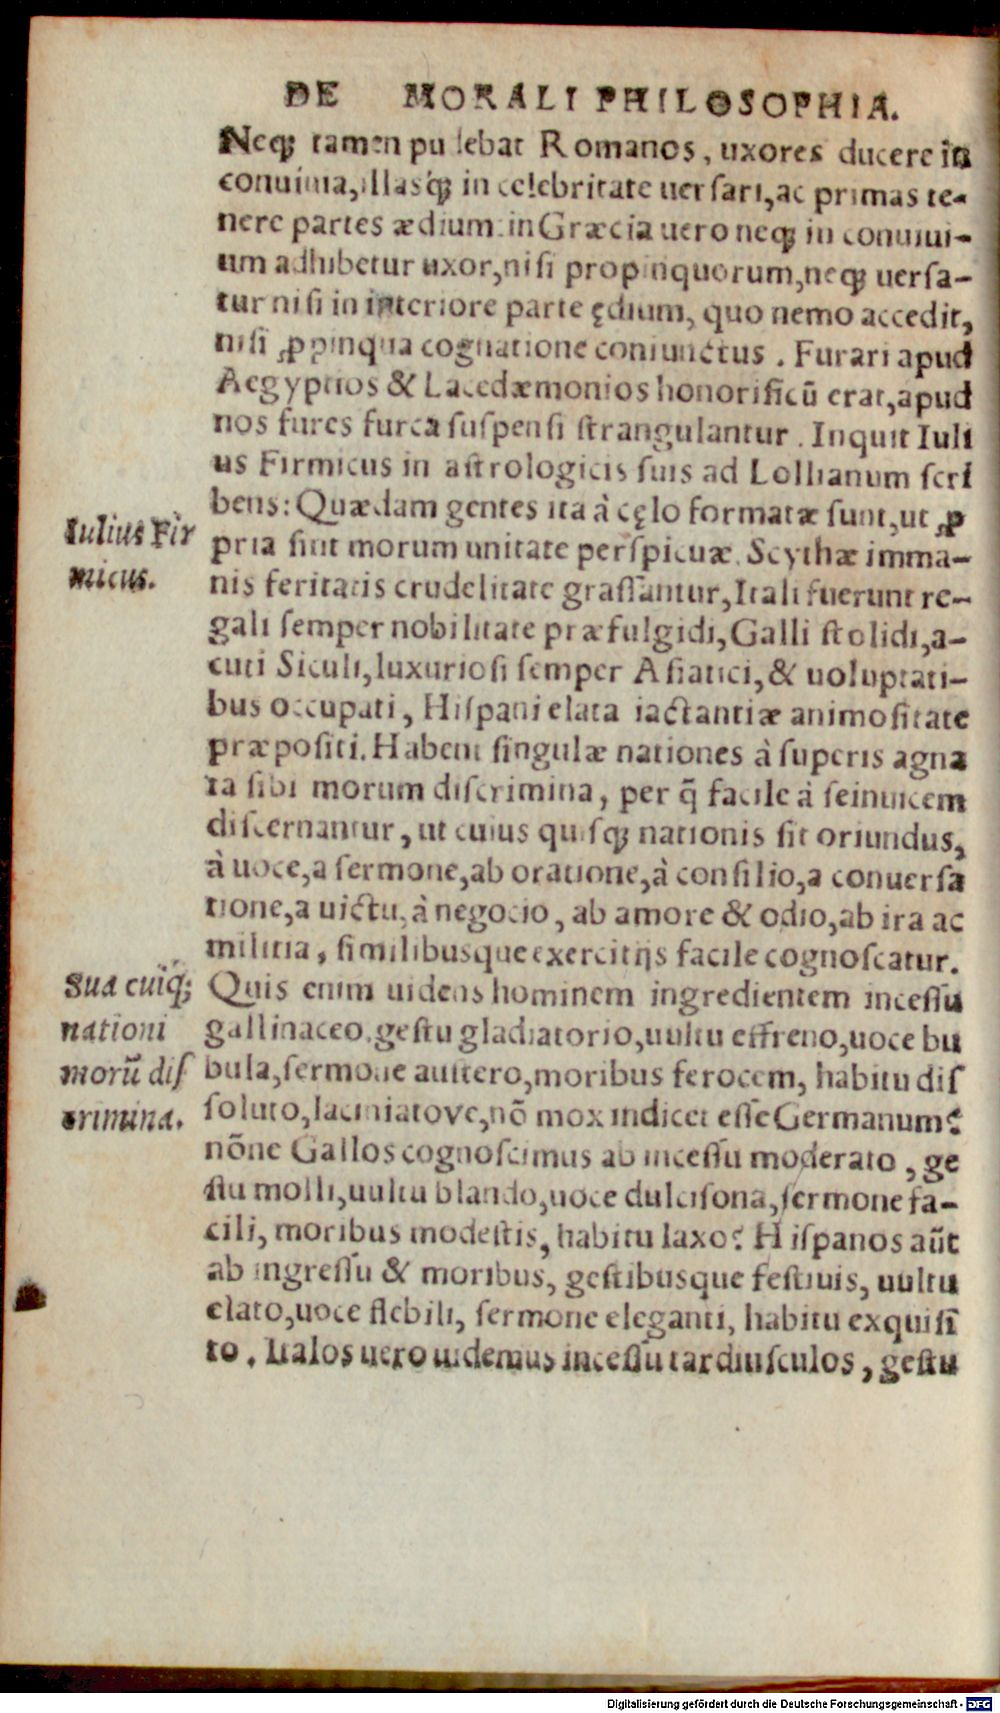 DE MORALI PHILOSOPHIA.
Neq; tamen pudebat Romanos, uxores ducere in
conuiuia, illasq; in celebritate uersari, ac primas te-
nere partes ædium: in Græcia uero neq; in conuiui-
um adhibetur uxor, nisi propinquorum, neq; uersa-
tur nisi in interiore parte ędium, quo nemo accedit,
nisi ꝓpinqua cognatione coniunctus. Furari apud
Aegyptios & Lacedæmonios honorificū erat, apud
nos fures furca suspensi strangulantur. Inquit Iuli
us Firmicus in astrologicis suis ad Lollianum scri
bens: Quædam gentes ita à cęlo formatæ sunt, ut ꝓ
Iulius Fir
micus.
pria sint morum unitate perspicuæ. Scythæ imma-
nis feritatis crudelitate grassantur, Itali fuerunt re-
gali semper nobilitate præfulgidi, Galli stolidi, a-
cuti Siculi, luxuriosi semper Asiatici, & uoluptati-
bus occupati, Hispani elata iactantiæ animositate
præpositi. Habent singulæ nationes à superis agna
ta sibi morum discrimina, per q̄ facile à seinuicem
discernantur, ut cuius quisq; nationis sit oriundus,
à uoce, a sermone, ab oratione, à consilio, a conuersa
tione, a uictu, à negocio, ab amore & odio, ab ira ac
militia, similibusque exercitijs facile cognoscatur.
Sua cuiq;
nationi
morū dis
crimina.
Quis enim uidens hominem ingredientem incessu
gallinaceo, gestu gladiatorio, uultu effreno, uoce bu
bula, sermone austero, moribus ferocem, habitu dis
soluto, laciniatove, nō mox iudicet esse Germanum?
nōne Gallos cognoscimus ab incessu moderato, ge
stu molli, uultu blando, uoce dulcisona, sermone fa-
cili, moribus modestis, habitu laxo? Hispanos aūt
ab ingressu & moribus, gestibusque festiuis, uultu
elato, uoce flebili, sermone eleganti, habitu exquisi
to. Italos uero uidemus incessu tardiusculos, gestu
Digitalisierung gefördert durch die Deutsche Forschungsgemeinschaft - DFG